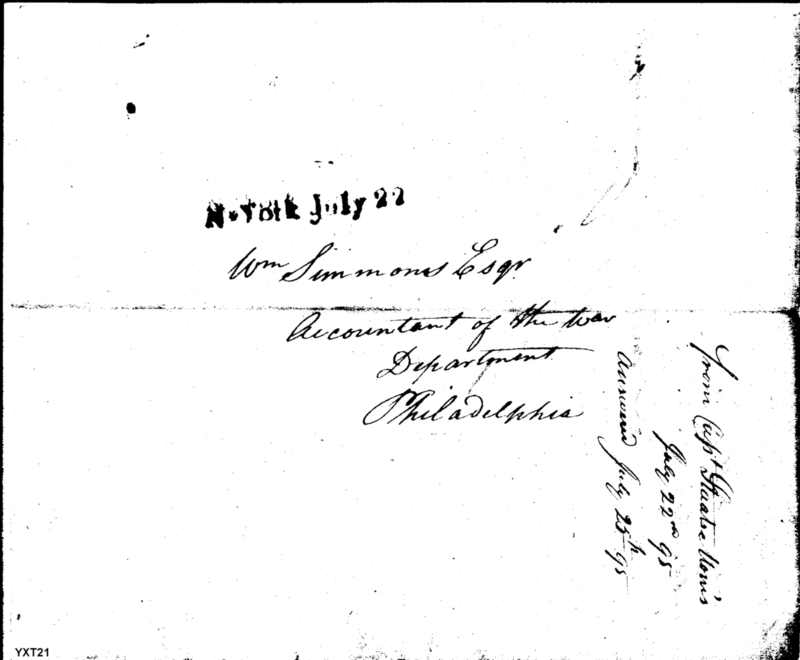 N·York July 22
Wm Simmons Esqr
Accountant of the War
Department
Philadelphia
from Capt Staats Morris
July 22nd 95
Answered July 25th 95
YXT21